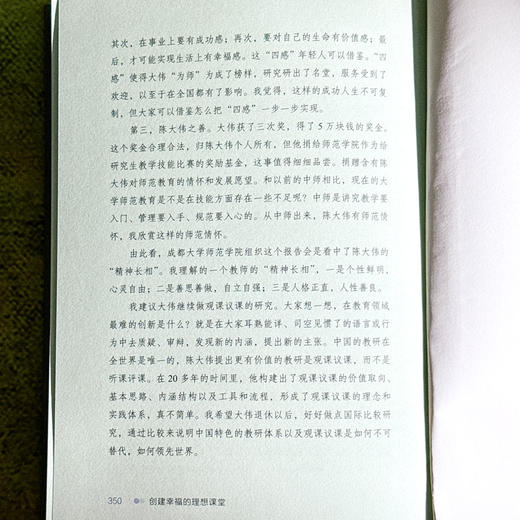 其次，在事业上要有成功感；再次，要对自己的生命有价值感；最
后，才可能实现生活上有幸福感。这“四感”年轻人可以借鉴。“四
感”使得大伟“为师”为成了榜样，研究研出了名堂，服务受到了
欢迎，以至于在全国都有了影响。我觉得，这样的成功人生不可复
制，但大家可以借鉴怎么把“四感”一步一步实现。
第三，陈大伟之善。大伟获了三次奖，得了5万块钱的奖金。
这个奖金合理合法，归陈大伟个人所有，但他捐给师范学院作为给
研究生教学技能比赛的奖励基金，这事值得细细品尝。捐赠含有陈
大伟对师范教育的情怀和发展愿望。和以前的中师相比，现在的大
学师范教育是不是在技能方面存在一些不足呢？中师是讲究教学要
入门、管理要入手、规范要入心的。从中师出来，陈大伟有师范情
怀，我欣赏这样的师范情怀。
由此看，成都大学师范学院组织这个报告会是看中了陈大伟的
“精神长相”。我理解的一个教师的“精神长相”，一是个性鲜明，
心灵自由；二是善思善做，自立自强；三是人格正直，人性善良。
我建议大伟继续做观课议课的研究。大家想一想，在教育领域
最难的创新是什么？就是在大家耳熟能详、司空见惯了的语言或行
为中去质疑、审辩，发现新的内涵，提出新的主张。中国的教研在
全世界是唯一的，陈大伟提出更有价值的教研是观课议课，而不是
听课评课。在20多年的时间里，他构建出了观课议课的价值取向、
基本思路、内涵结构以及工具和流程，形成了观课议课的理念和
实践体系，真不简单。我希望大伟退休以后，好好做点国际比较研
究，通过比较来说明中国特色的教研体系以及观课议课是如何不可
替代，如何领先世界。
350 创建幸福的理想课堂